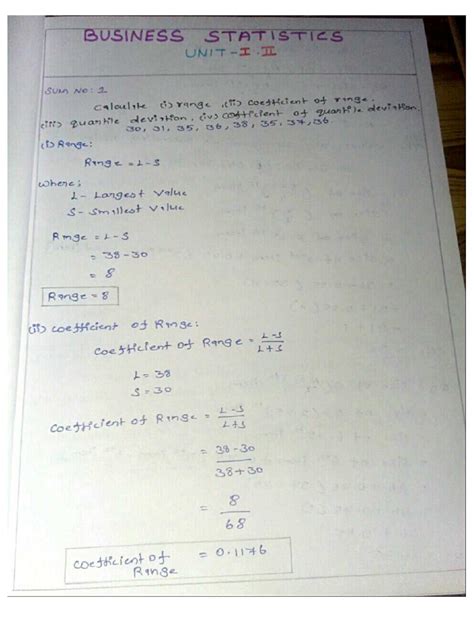 BUSINESS STATISTICS
UNIT-I.II
SUM NO: 1
Calculate (i) range, (ii) coefficient of range.
(iii) quantile deviation, (iv) coefficient of quantile deviation.
30, 31, 35, 36, 38, 35, 37, 36.
(i) Range:
Range = L-S
where;
L- Largest Value
S- Smallest Value
Range = L-S
= 38-30
= 8
Range = 8
(ii) coefficient of Range:
Coefficient of Range = L-S
L+S
L= 38
S=30
Coefficient of Range = L-S
L+S
= 38-30
38+30
= 8
68
Coefficient of = 0.1176
Range